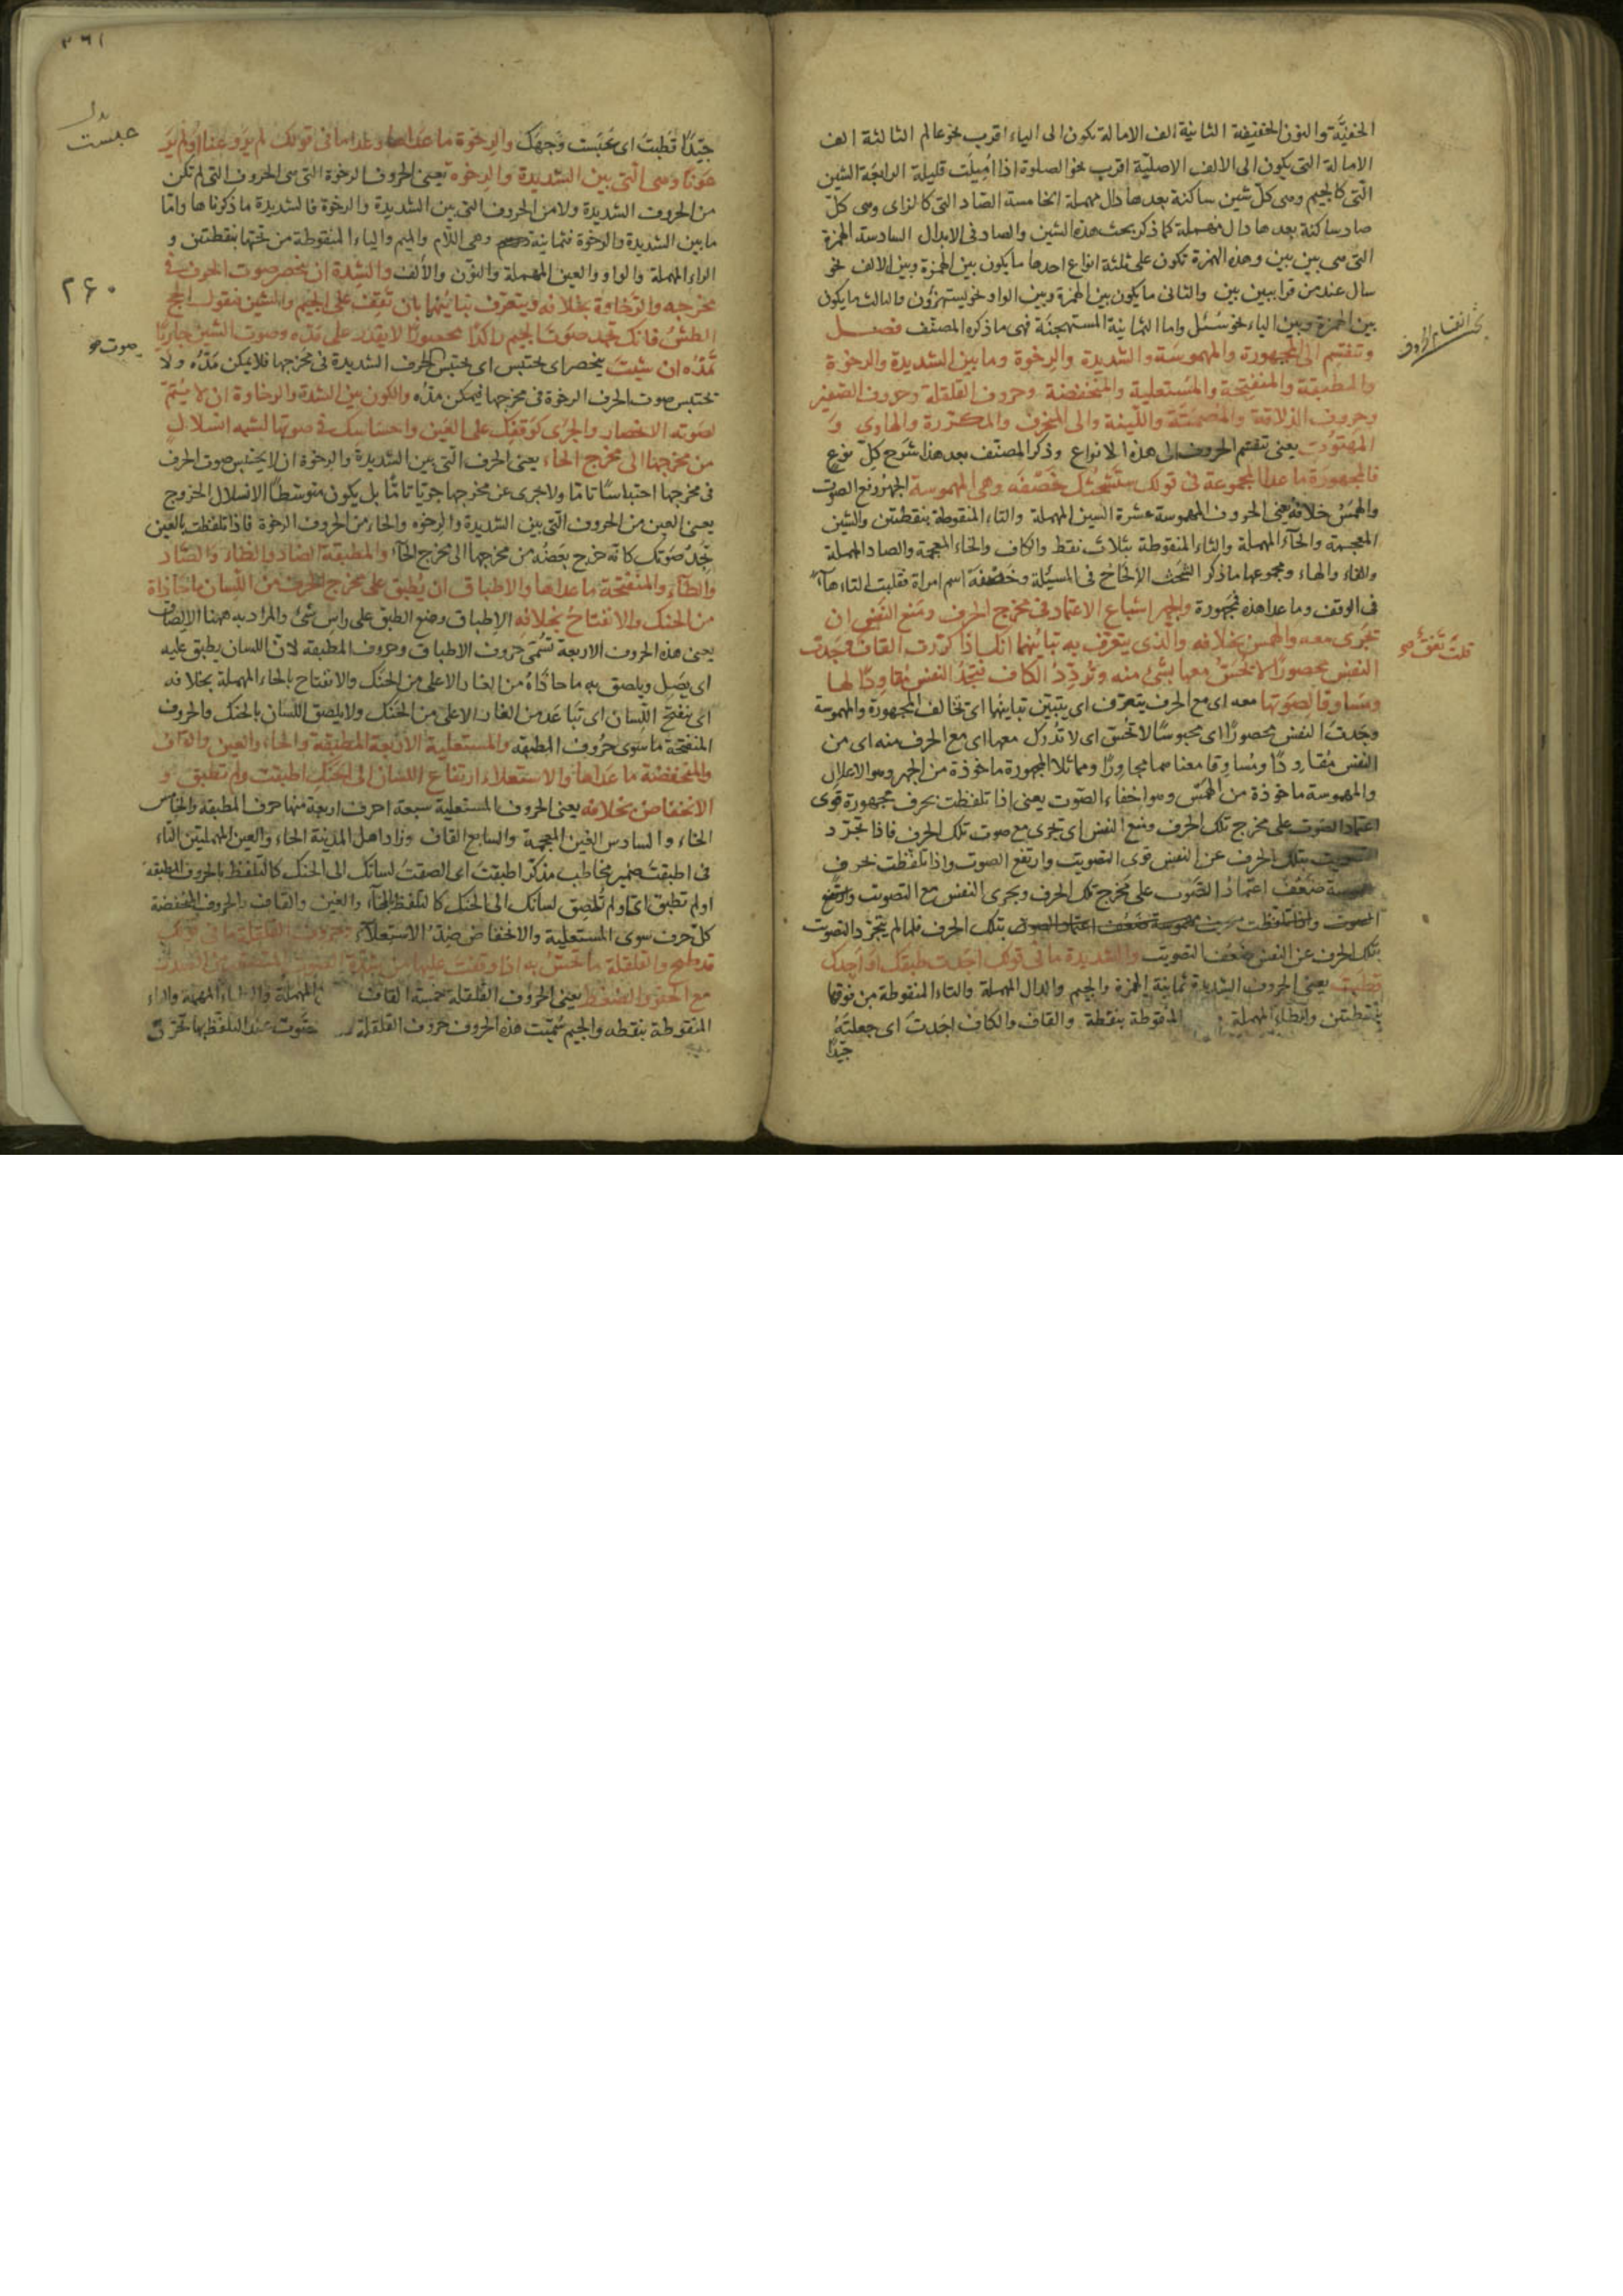 الخفيّة والنون الخفيفة الثانية الف الامالة تكون الى الياء اقرب نحو عالم الثالثة الف
الامالة التى يكون الى الالف الاصلية اقرب نحو الصلوة اذا اميلت قليلة الرابعة الشين
الّتى كالجيم وهى كلّ شين ساكنة بعدها دال مهملة الخامسة الصاد التى كالزاى وهى كلّ
صاد ساكنة بعدها دال مهملة كما ذكر بحث هذه الشين والصاد فى الابدال السادسة الهمزة
التى هى بين بين وهذه الهمزة تكون على ثلثة انواع احدها ما يكون بين الهمزة وبين الالف نحو
سال عند من قرا بين بين والثانى ما يكون بين الهمزة وبين الواو نحو يستهزؤن والثالث ما يكون
بين الهمزة وبين الياء نحو سئل واما الثمانية المستهجنة فهى ما ذكره المصنف فصل
بحث انقسام الحروف
وتنقسم الى المجهورة والمهموسة والشديدة والرخوة وما بين الشديدة والرخوة
والمطبقة والمنفتحة والمستعلية والمنخفضة وحروف القلقلة وحروف الصفير
وحروف الذلاقة والمصمتة واللينة والى المنحرف والمكررة والهاوى و
المهتوت يعنى تنقسم الحروف الى هذه الانواع وذكر المصنف بعد هذا شرح كلّ نوع
فالمجهورة ما عدا المجموعة فى قولك ستشحثك خصفه وهى المهموسة الجهر رفع الصوت
والهمس خلافه يعنى الحروف المهموسة عشرة السين المهملة والتاء المنقوطة بنقطتين والشين
المعجمة والحاء المهملة والثاء المنقوطة بثلاث نقط والكاف والخاء المعجمة والصاد المهملة
والفاء والهاء ومجموعها ما ذكر الشحث الالحاح فى المسئلة وخصفة اسم امراة فقلبت التاء هاء
فى الوقف وما عدا هذه مجهورة والجهر اشباع الاعتماد فى مخرج الحرف ومنع النفس ان
تجرى معه والهمس بخلافه والذى يتعرف به تباينهما انك اذا كررت القاف وجدت
قلت ققق صح
النفس محصورا لا تحس معها بشئ منه وتردد الكاف فتجد النفس مقاودا لها
ومساوقا لصوتها معه اى مع الحرف يتعرف اى يتبين تباينهما اى تخالف المجهورة والمهموسة
وجدت النفس محصورا اى محبوسا لا تحس اى لا تدرك معها اى مع الحرف منه اى من
النفس مقاودا ومساوقا معناهما مجاورا ومماثلا المجهورة ماخوذة من الجهر وهو الاعلان
والمهموسة ماخوذة من الهمس وهو اخفاء الصوت يعنى اذا تلفظت بحرف مجهورة قوى
اعتماد الصوت على مخرج تلك الحرف ومنع النفس اى تجرى مع صوت تلك الحرف فاذا تجرد
التصويت بتلك الحرف عن النفس قوى التصويت وارتفع الصوت واذا تلفظت بحرف
مهموسة ضعف اعتماد الصوت على مخرج تلك الحرف ويجرى النفس مع التصويت
بتلك الحرف فلما لم يتجرد التصويت
بتلك الحرف عن النفس ضعف التصويت والشديدة ما فى قولك اجدت طبقك او اجدك
قطبت يعنى الحروف الشديدة ثمانية الهمزة والجيم والدال المهملة والتاء المنقوطة من فوقها
بنقطتين والطاء المهملة المنقوطة بنقطة والقاف والكاف اجدت اى جعلته
جيدا
٣٦١
جيدا قطبت اى عبست وجهك والرخوة ما عداها وعدا ما فى قولك لم يروعنا او لم ير
بدل
عبست
عونا وهى التى بين الشديدة والرخوة يعنى الحروف الرخوة التى هى الحروف التى لم تكن
من الحروف الشديدة ولا من الحروف التى بين الشديدة والرخوة فالشديدة ما ذكرناها وامّا
ما بين الشديدة والرخوة فثمانية وهى اللام والميم والياء المنقوطة من تحتها بنقطتين و
الراء المهملة والواو والعين المهملة والنون والالف والشدة ان ينحصر صوت الحرف فى
٢٦٠
مخرجه والرخاوة بخلافه ويتعرف تباينهما بان تقف على الجيم والشين فتقول الحج
الطش فانك تجد صوت الجيم راكدا محصورا لا يقدر على مده وصوت الشين جاريا
صوت صح
تمده ان شئت ينحصر اى يحتبس اى يحتبس الحرف الشديدة فى مخرجها فلا يمكن مده ولا
تحتبس صوت الحرف الرخوة فى مخرجها فيمكن مده والكون بين الشدة والرخاوة ان لا يتمّ
لصوته الانحصار والجرى كوقفك على العين واحساسك فى صوتها لشبه انسلال
من مخرجها الى مخرج الحاء يعنى الحرف التى بين الشديدة والرخوة ان لا يحتبس صوت الحرف
فى مخرجها احتباسا تاما ولا جرى عن مخرجها جريا تاما بل يكون متوسطا الانسلال الخروج
يعنى العين من الحروف التى بين الشديدة والرخوة والحاء من الحروف الرخوة فاذا تلفظت بالعين
تجد صوتك كانه خرج بعضه من مخرجها الى مخرج الحاء والمطبقة الضاد والظاء والصاد
والطاء والمنفتحة ما عداها والاطباق ان يطبق على مخرج الحرف من اللسان ما حاذاه
من الحنك والانفتاح بخلافه الاطباق وضع الطبق على راس شئ والمراد به ههنا الالصاق
يعنى هذه الحروف الاربعة تسمى حروف الاطباق وحروف المطبقة لان اللسان يطبق عليه
اى يصل ويلصق به ما حاذاه من الغار الاعلى من الحنك والانفتاح بالحاء المهملة بخلافه
اى ينفتح اللسان اى تباعد من الغار الاعلى من الحنك ولا يلصق اللسان بالحنك والحروف
المنفتحة ما سوى حروف المطبقة والمستعلية الاربعة المطبقة والخاء والغين والقاف
والمنخفضة ما عداها والاستعلاء ارتفاع اللسان الى الحنك اطبقت ولم تطبق و
الانخفاض بخلافه يعنى الحروف المستعلية سبعة احرف اربعة منها حرف المطبقة والخامس
الخاء والسادس الغين المعجمة والسابع القاف وزاد اهل المدينة الحاء والعين المهملتين التاء
فى اطبقت ضمير مخاطب مذكر اطبقت اى الصقت لسانك الى الحنك كالتلفظ بالحروف المطبقة
او لم تطبق اى او لم تلصق لسانك الى الحنك كالتلفظ بالخاء والغين والقاف والحروف المنخفضة
كلّ حرف سوى المستعلية والانخفاض ضد الاستعلاء وحروف القلقلة ما فى قولك
قد طبج والقلقلة ما تحس به اذا وقفت عليها من شدة الصوت
مع الحفز والضغط يعنى الحروف القلقلة خمسة القاف المهملة والطاء المهملة والباء
المنقوطة بنقطه والجيم سميت هذه الحروف حروف القلقلة صوت عند التلفظ بها تحرك